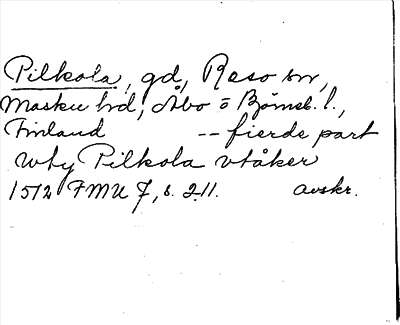 Pilkola, gd, Reso sn,
Masku hd, Åbo o Björneb. l.,
Finland -- fierde part
wty Pilkola vtåker
1512 FMU 7, s. 211. avskr.